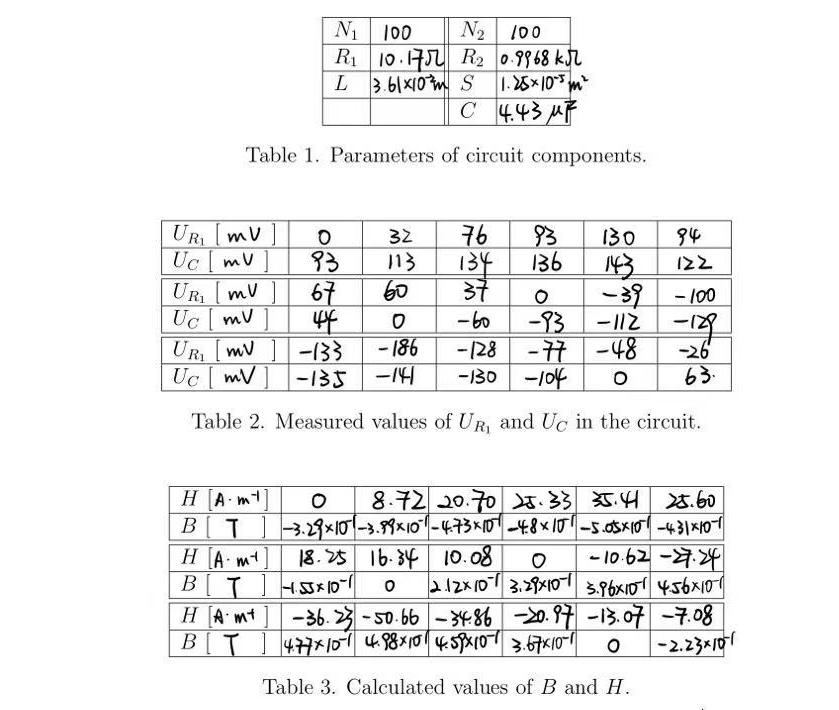 N₁ 100 N₂ 100
R₁ 10.17Ω R₂ 0.9968 kΩ
L 3.61×10⁻²m S 1.25×10⁻⁵ m²
C 4.43 μF
Table 1. Parameters of circuit components.
U_R₁ [ mV ] 0 32 76 93 130 94
U_C [ mV ] 93 113 134 136 143 122
U_R₁ [ mV ] 67 60 37 0 -39 -100
U_C [ mV ] 44 0 -60 -93 -112 -129
U_R₁ [ mV ] -133 -186 -128 -77 -48 -26
U_C [ mV ] -135 -141 -130 -104 0 63.
Table 2. Measured values of U_R₁ and U_C in the circuit.
H [A·m⁻¹] 0 8.72 20.70 25.33 35.41 25.60
B [ T ] -3.29×10⁻¹ -3.99×10⁻¹ -4.73×10⁻¹ -4.8×10⁻¹ -5.05×10⁻¹ -4.31×10⁻¹
H [A·m⁻¹] 18.25 16.34 10.08 0 -10.62 -27.24
B [ T ] -1.55×10⁻¹ 0 2.12×10⁻¹ 3.29×10⁻¹ 3.96×10⁻¹ 4.56×10⁻¹
H [A·m⁻¹] -36.23 -50.66 -34.86 -20.97 -13.07 -7.08
B [ T ] 4.77×10⁻¹ 4.98×10⁻¹ 4.59×10⁻¹ 3.67×10⁻¹ 0 -2.23×10⁻¹
Table 3. Calculated values of B and H.